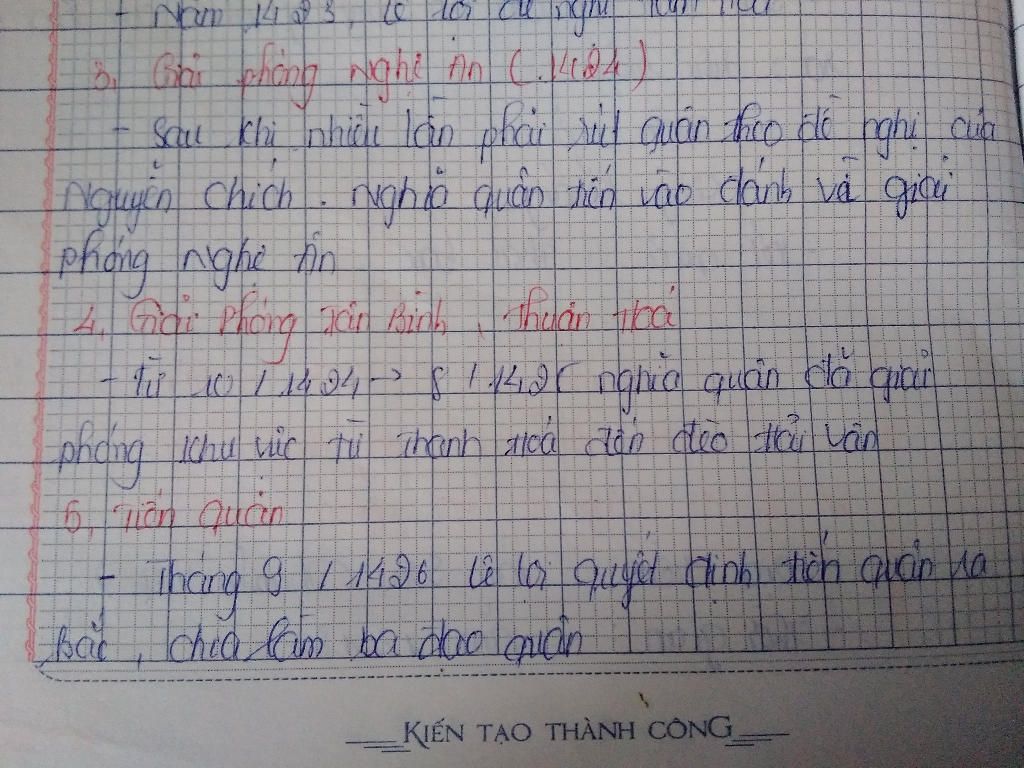 - Năm 1423, Lê Lợi cử nghị
3, Giải phóng Nghệ An (.1424)
- Sau khi nhiều lần phải rút quân theo đề nghị của
Nguyễn Chích. Nghĩa quân tiến vào đánh và giải
phóng Nghệ An
4, Giải phóng Tân Bình, Thuận Hoá
- Từ 10 / 1424 → 8 / 1425 nghĩa quân đã giải
phóng khu vực từ Thanh Hoá đến đèo Hải Vân
5, Tiến quân
- Tháng 9 / 1426 Lê Lợi quyết định tiến quân ra
Bắc, chia làm ba đạo quân
KIẾN TẠO THÀNH CÔNG